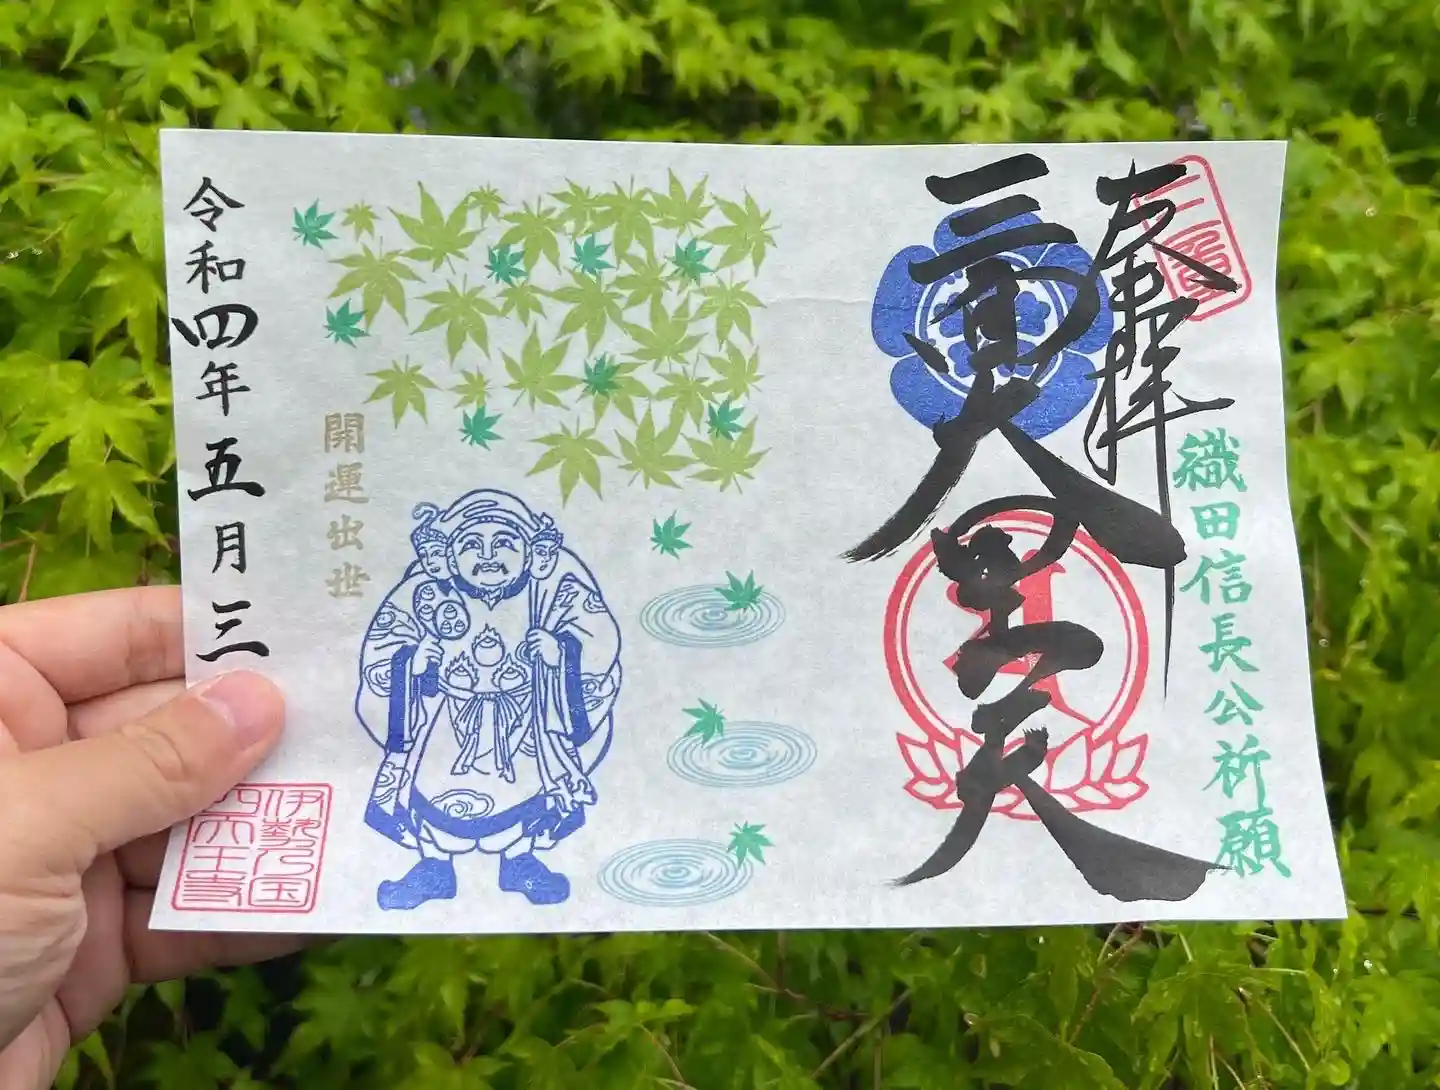 奉拝
三寶
織田信長公祈願
三面大黒天
開運出世
令和四年五月三
伊勢乃国
四天王寺